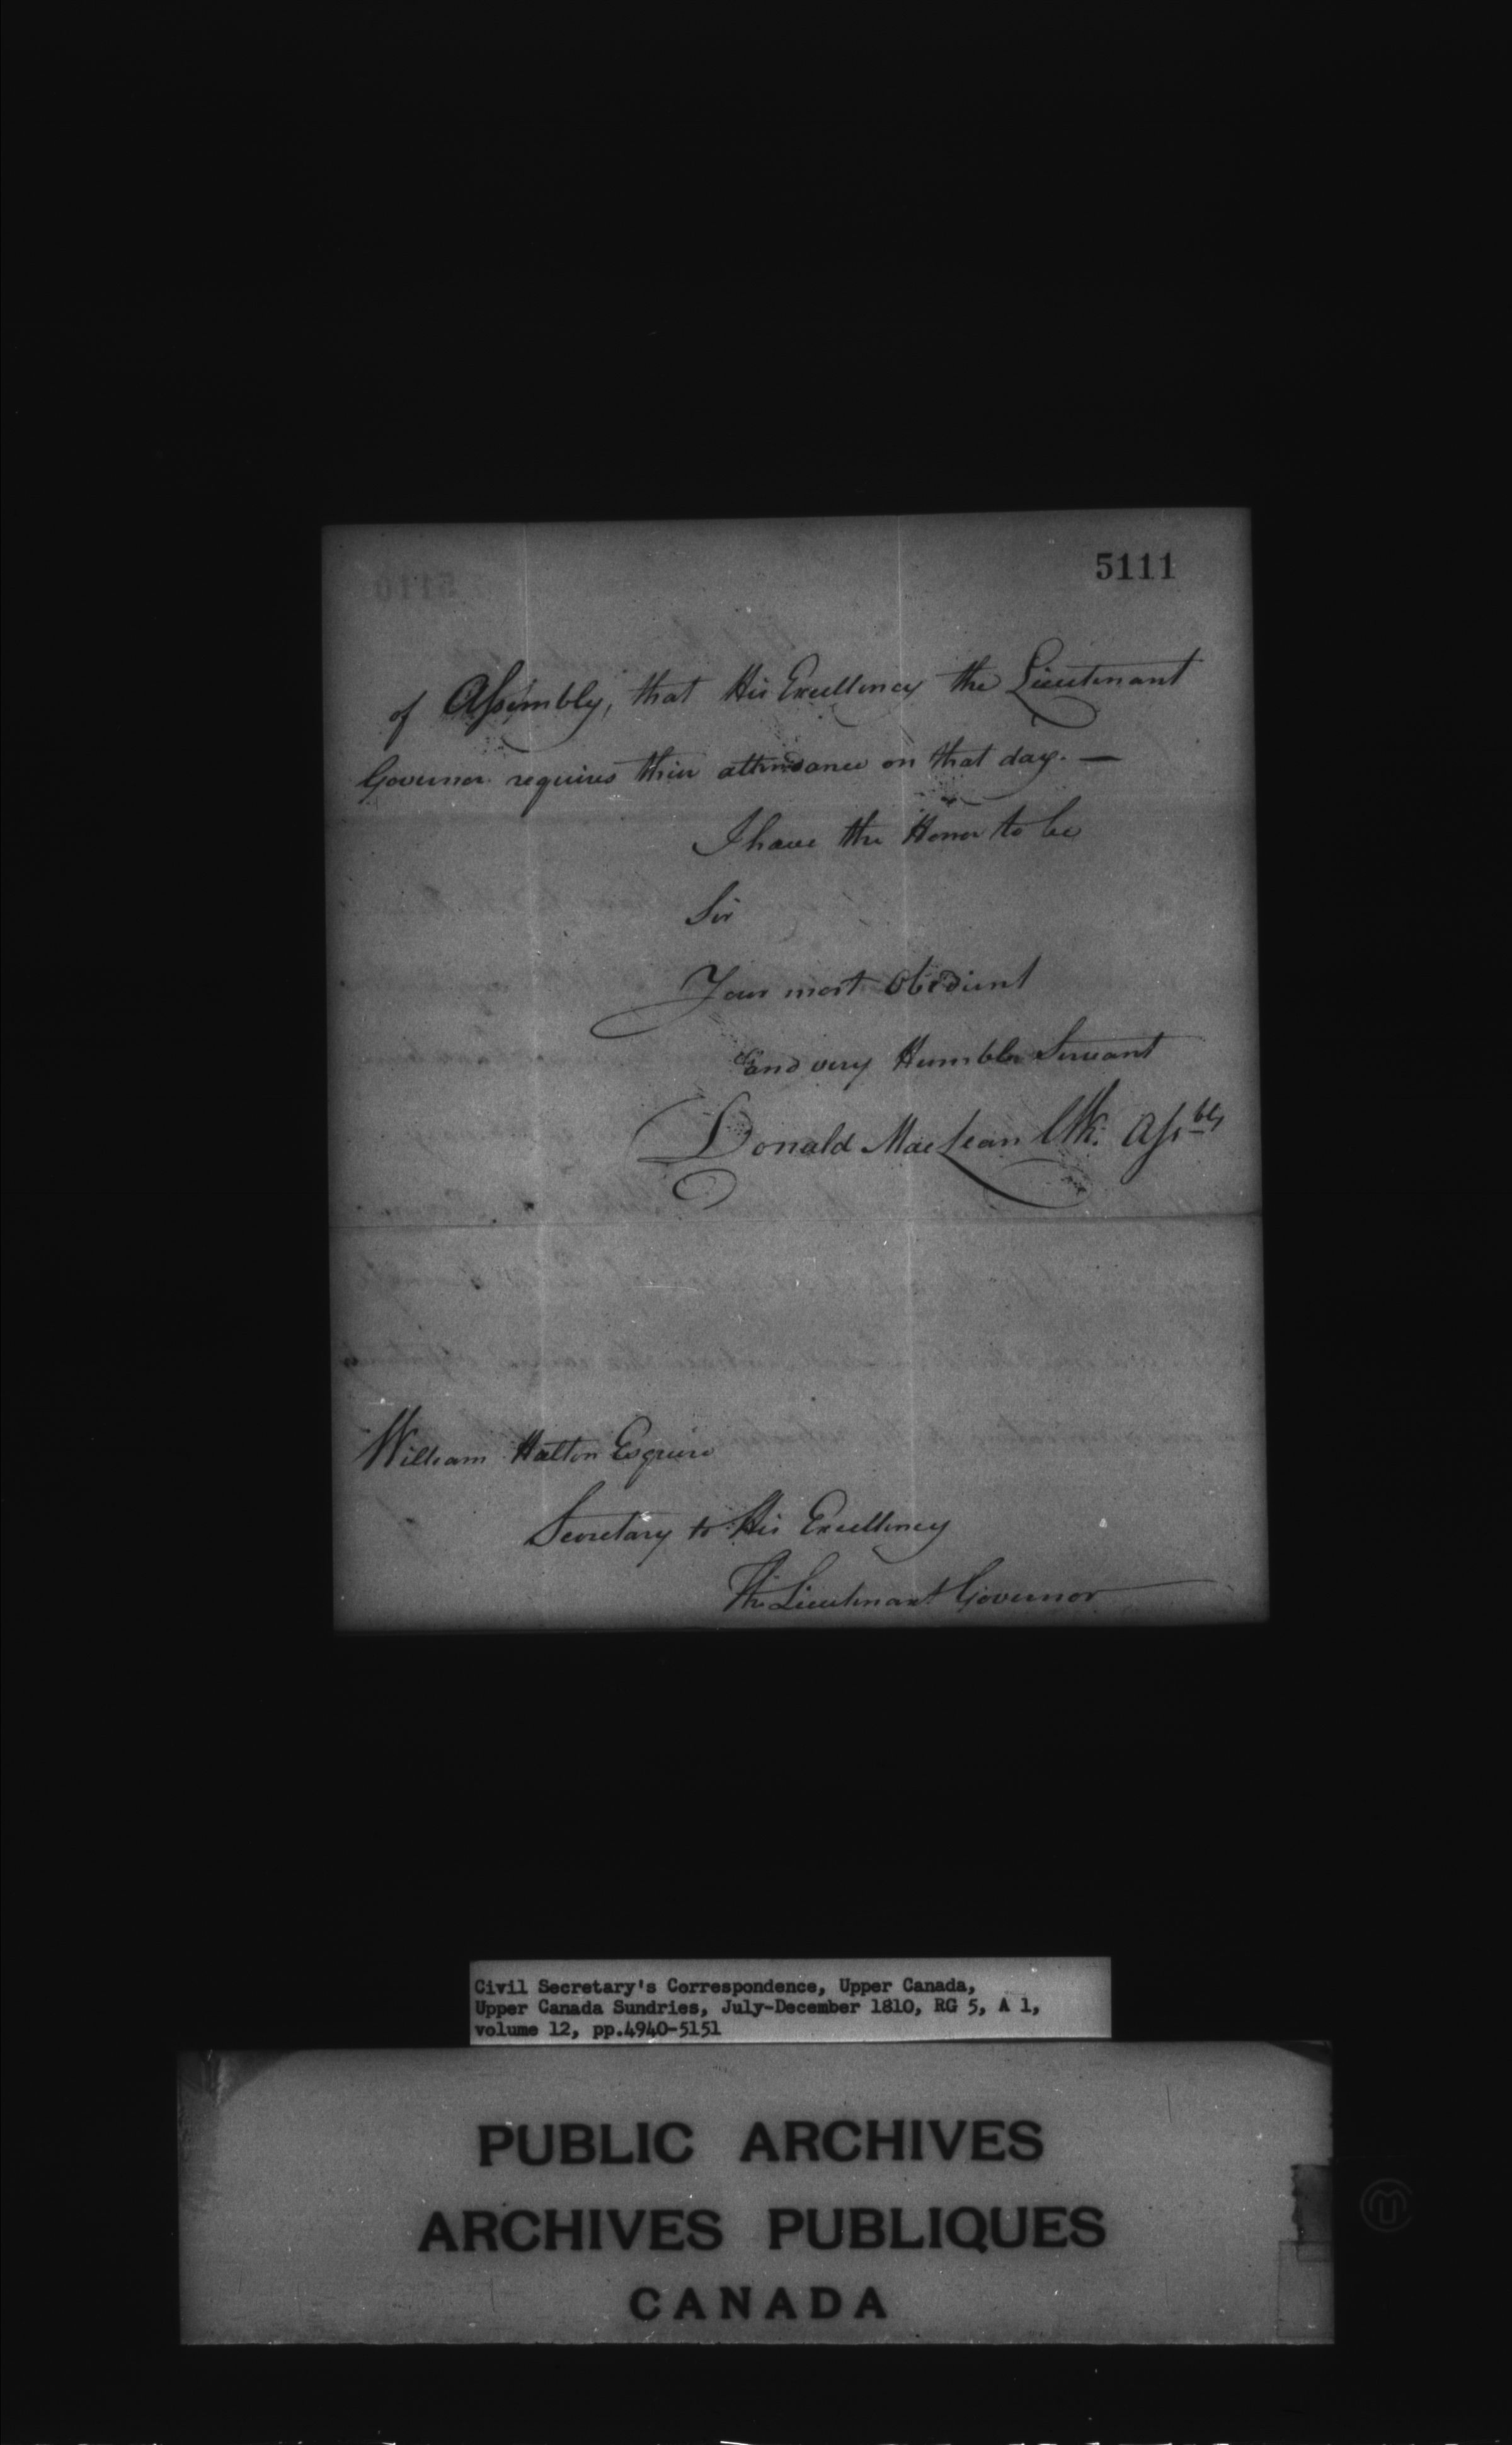 5111
of Assembly, that His Excellency the Lieutenant
Governor requires their attendance on that day. —
I have the Honor to be
Sir
Your most Obedient
and very Humble Servant
Donald MacLean Clk. Assbly
William Halton Esquire
Secretary to His Excellency
The Lieutenant Governor
Civil Secretary's Correspondence, Upper Canada,
Upper Canada Sundries, July-December 1810, RG 5, A 1,
volume 12, pp.4940-5151
PUBLIC ARCHIVES
ARCHIVES PUBLIQUES
CANADA